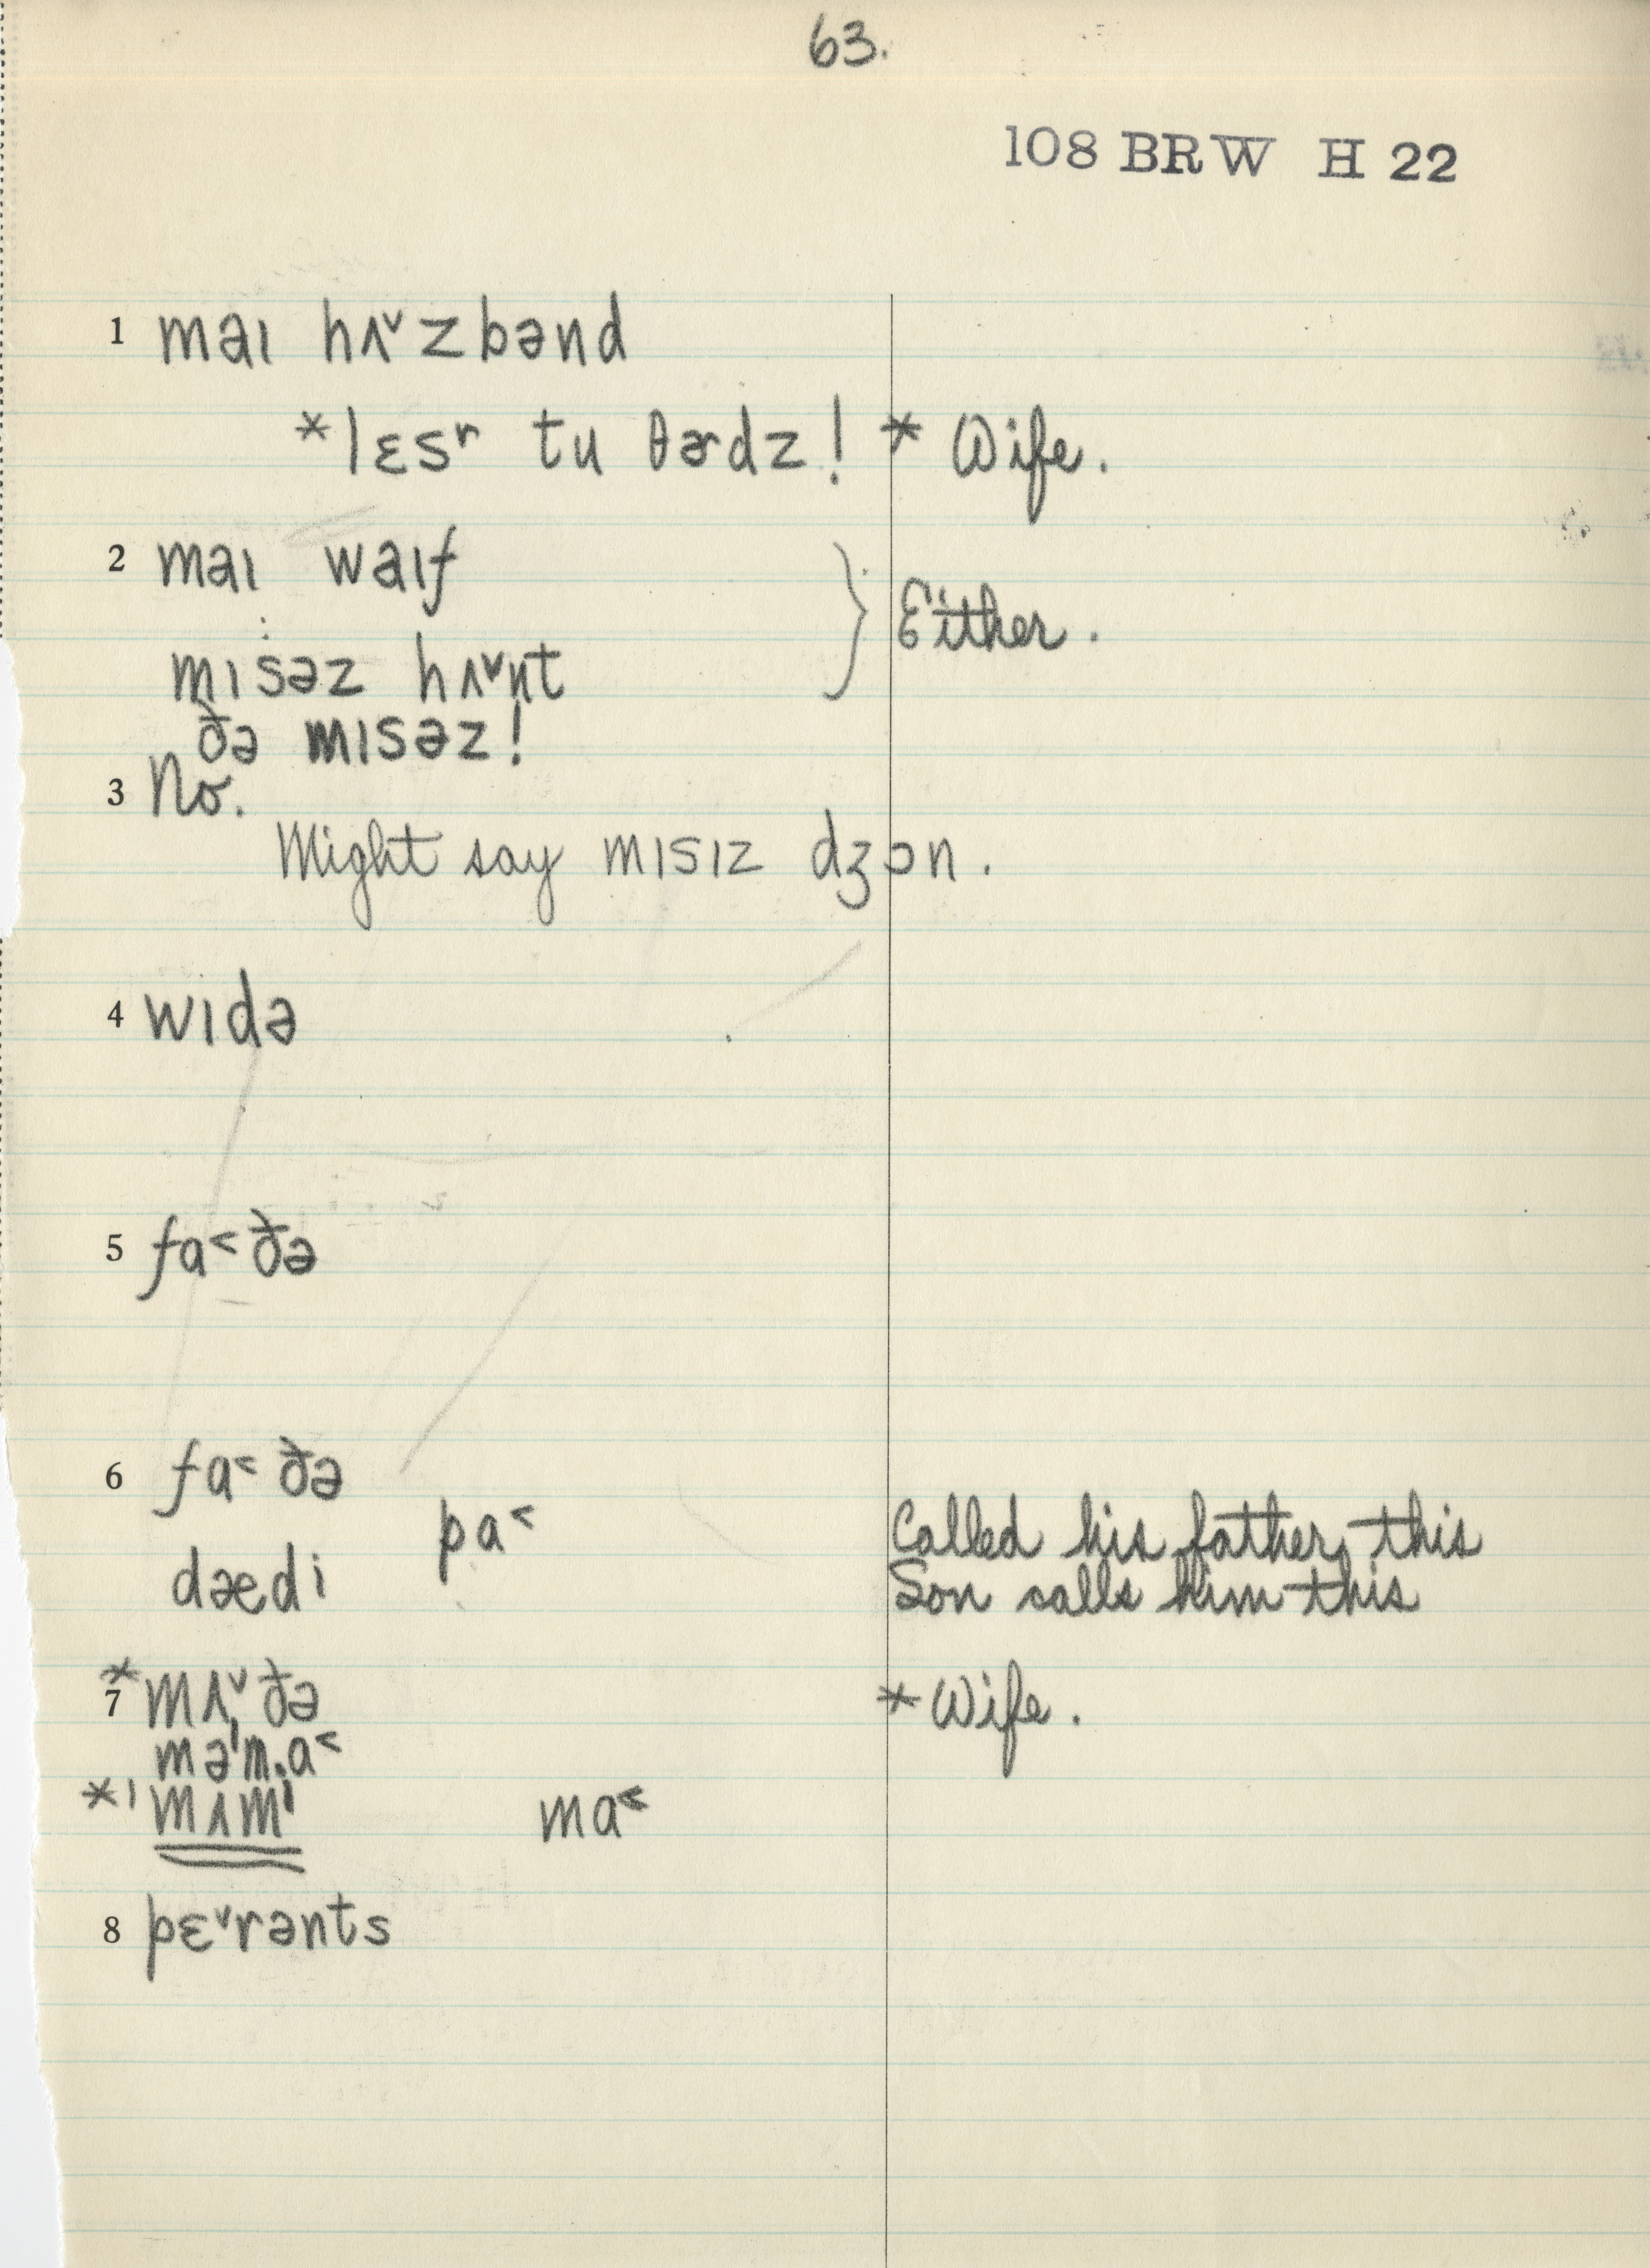 63.
108 BRW H 22
1 maɪ hʌ˅zbənd
*lɛsʳ tu θɚdz! * Wife.
2 maɪ waɪf
} Either.
mɪsəz hʌ˅nt
ðə mɪsəz!
3 No.
Might say mɪsɪz dʒɔn.
4 wɪdə
5 fa˂ðə
6 fa˂ðə
pa˂ Called his father this
dædi Son calls him this
*7 mʌ˅ðə * Wife.
məˈm.a˂
*ˈmʌmˈ ma˂
8 pɛ˅rənts